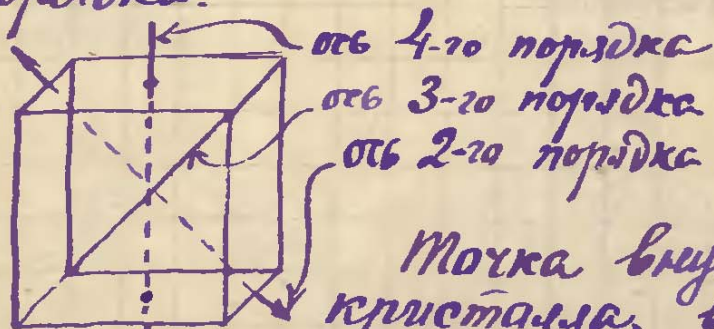 ось 4-го порядка
ось 3-го порядка
ось 2-го порядка
Точка вну
кристалла